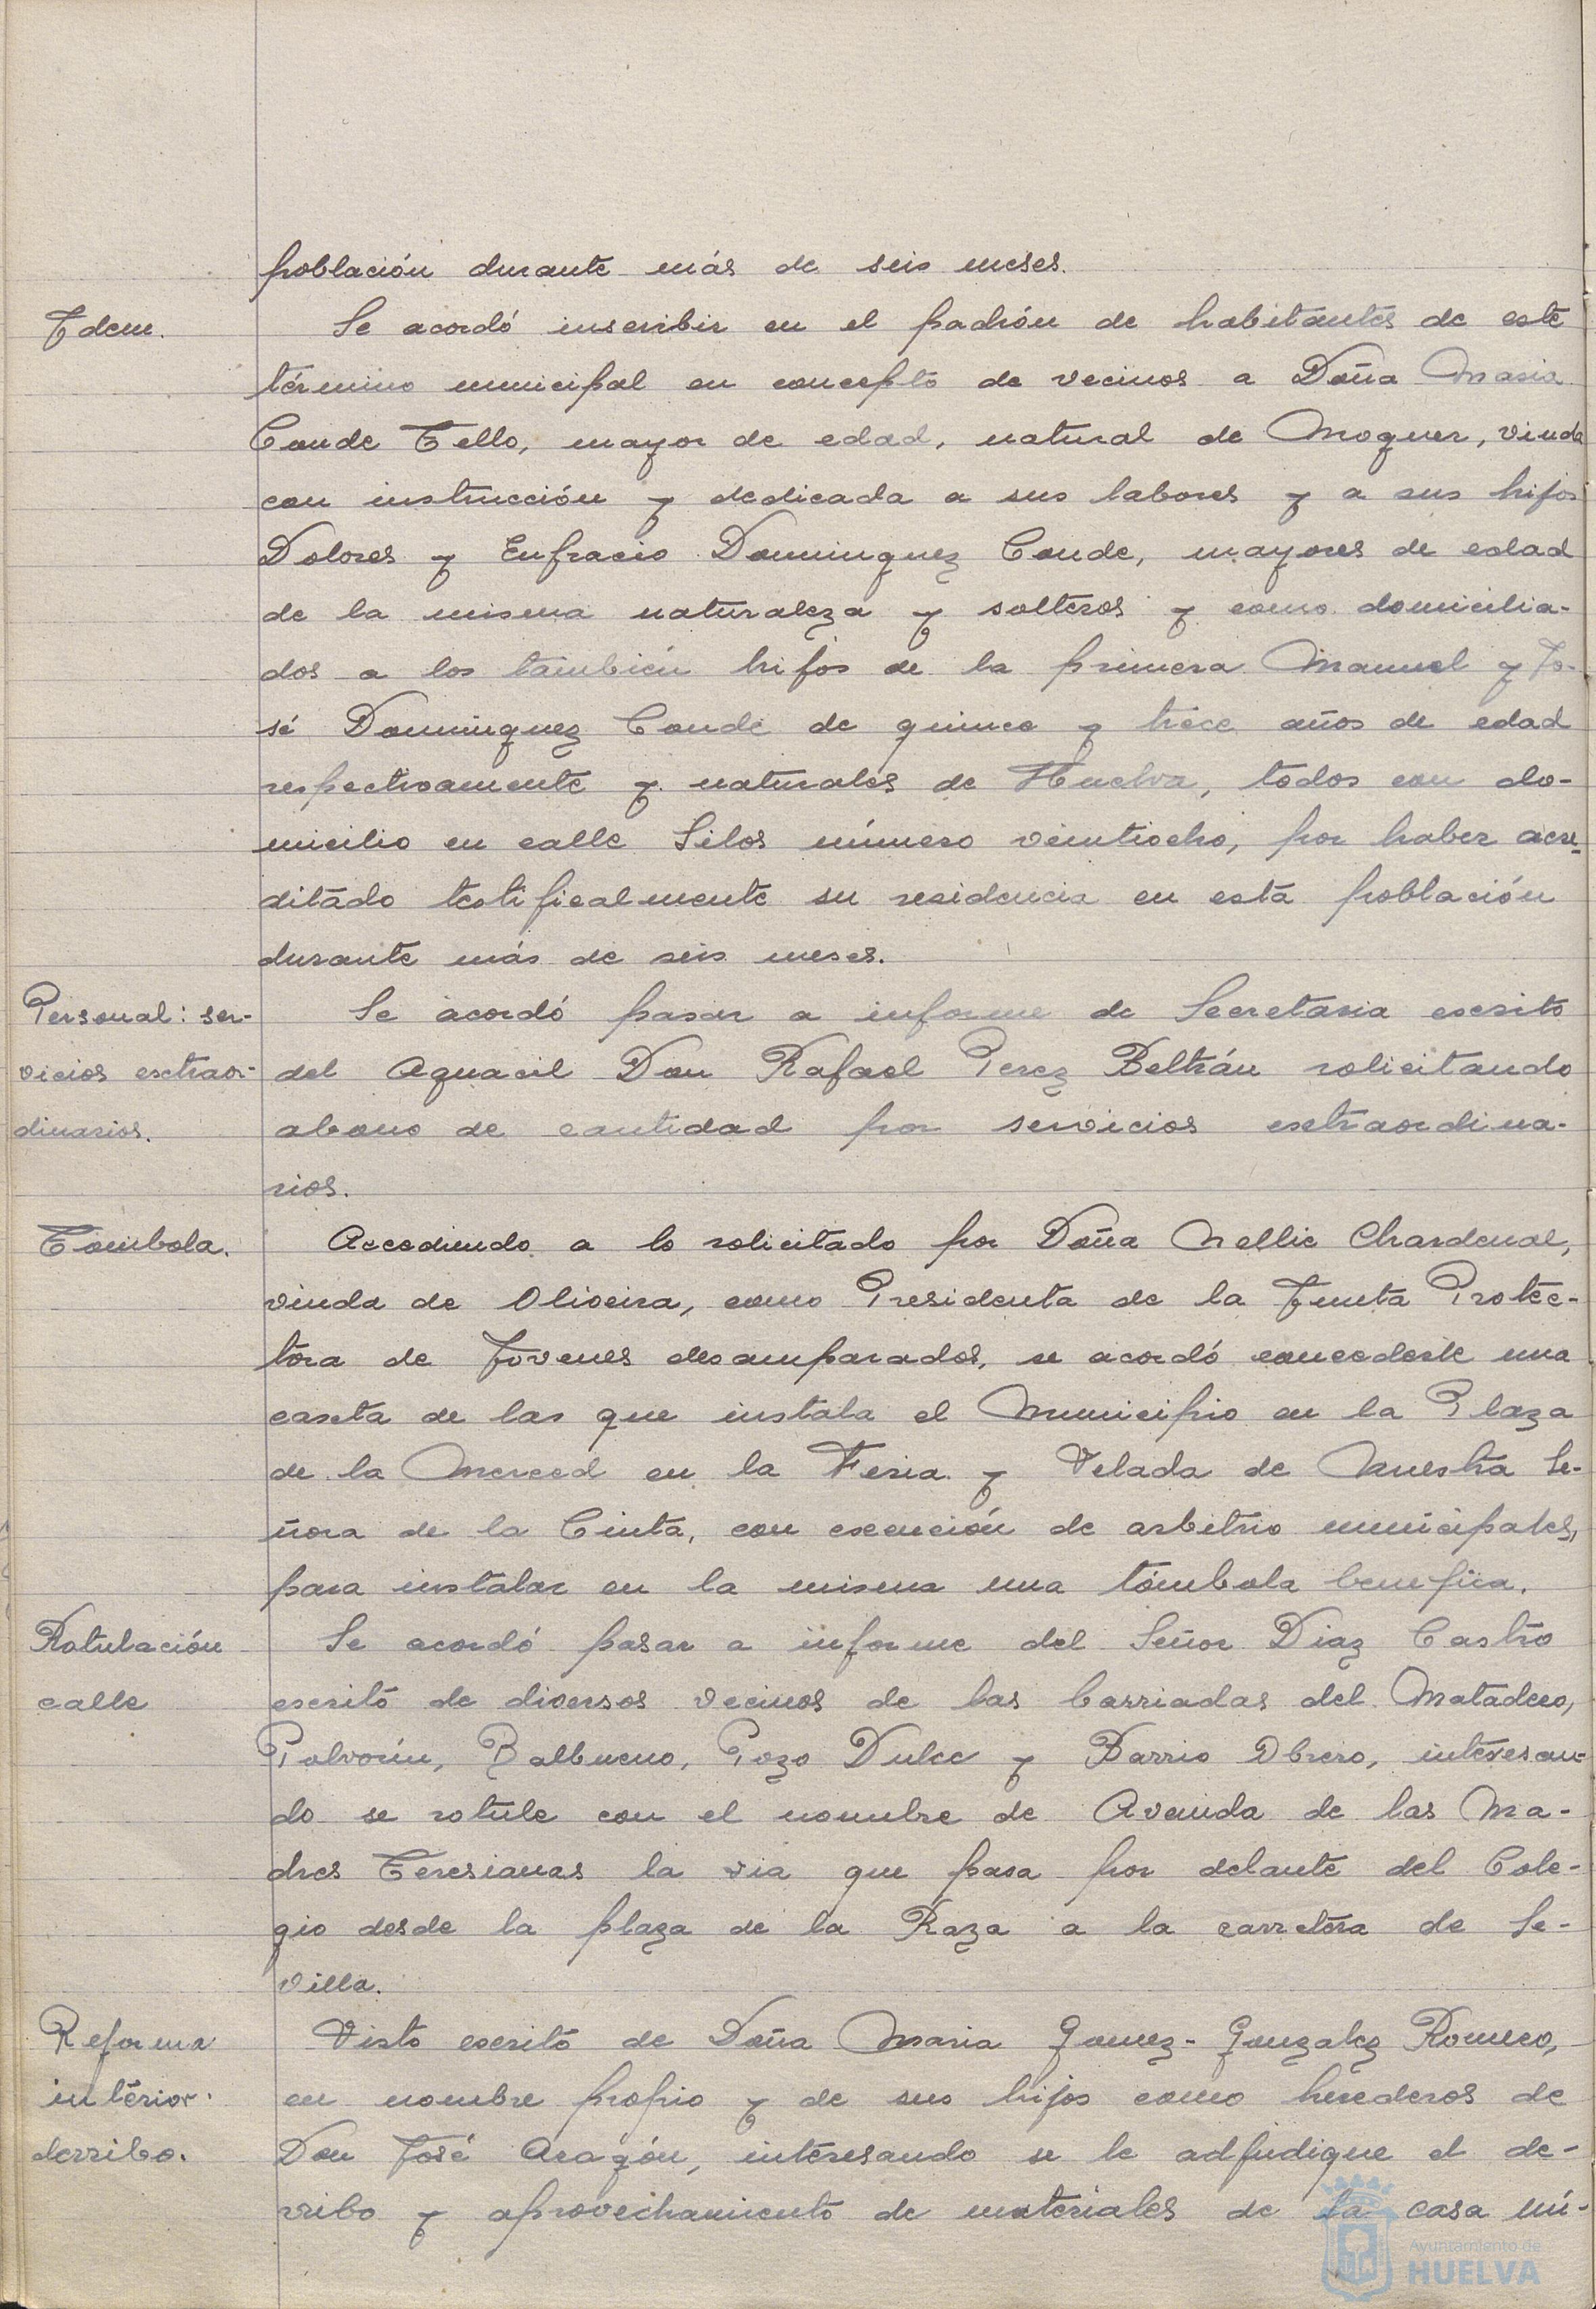 población durante más de seis meses.
Idem.
Se acordó inscribir en el padrón de habitantes de este
término municipal en concepto de vecinos a Doña Maria
Conde Tello, mayor de edad, natural de Moguer, viuda
con instrucción y dedicada a sus labores y a sus hijos
Dolores y Eufracio Dominguez Conde, mayores de edad
de la misma naturaleza y solteros y como domicilia-
dos a los también hijos de la primera Manuel y Jo-
sé Dominguez Conde de quince y trece años de edad
respectivamente y naturales de Huelva, todos con do-
micilio en calle Silos número veintiocho, por haber acre-
ditado testificalmente su residencia en esta población
durante más de seis meses.
Personal: ser-
vicios extraor-
dinarios.
Se acordó pasar a informe de Secretaria escrito
del Aguacil Don Rafael Perez Beltrán solicitando
abono de cantidad por servicios extraordina-
rios.
Tómbola.
Accediendo a lo solicitado por Doña Nellie Chardenal,
viuda de Oliveira, como Presidenta de la Junta Protec-
tora de Jovenes desamparados, se acordó concederle una
caseta de las que instala el Municipio en la Plaza
de la Merced en la Feria y Velada de Nuestra Se-
ñora de la Cinta, con esención de arbitrio municipales,
para instalar en la misma una tómbola benefica.
Rotulación
calle
Se acordó pasar a informe del Señor Diaz Castro
escrito de diversos vecinos de las barriadas del Matadero,
Polvorín, Balbueno, Pozo Dulce y Barrio Obrero, interesan-
do se rotule con el nombre de Avenida de las Ma-
dres Teresianas la via que pasa por delante del Cole-
gio desde la plaza de la Raza a la carretera de Se-
villa.
Reforma
interior:
derribo.
Visto escrito de Doña Maria Gomez-Gonzalez Romero,
en nombre propio y de sus hijos como herederos de
Don José Aragón, interesando se le adjudique el de-
rribo y aprovechamiento de materiales de la casa nú-
Ayuntamiento de
HUELVA